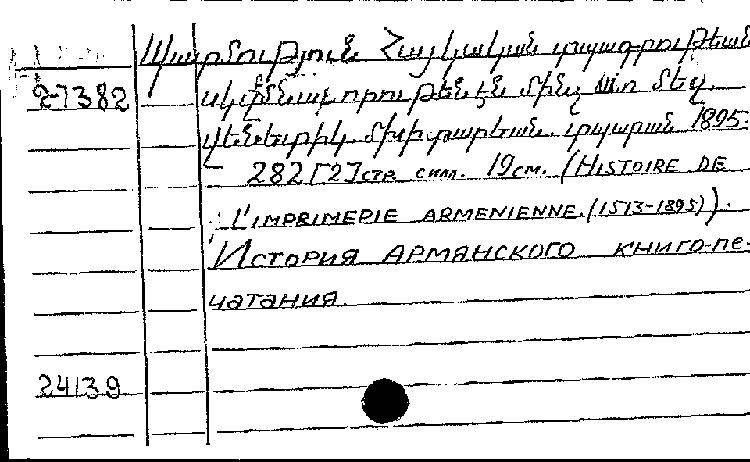 Պատմութիւն Հայկական տպագրութեան
27382 սկզբնաւորութենէն մինչ առ մեզ.
Վենետիկ. Մխիթարեան տպարան 1895.
282[2]стр. с им. 19см. (HISTOIRE DE
L'IMPRIMERIE ARMENIENNE. (1513-1895)).
ИСТОРИЯ АРМЯНСКОГО КНИГО-ПЕ-
ЧАТАНИЯ.
24139